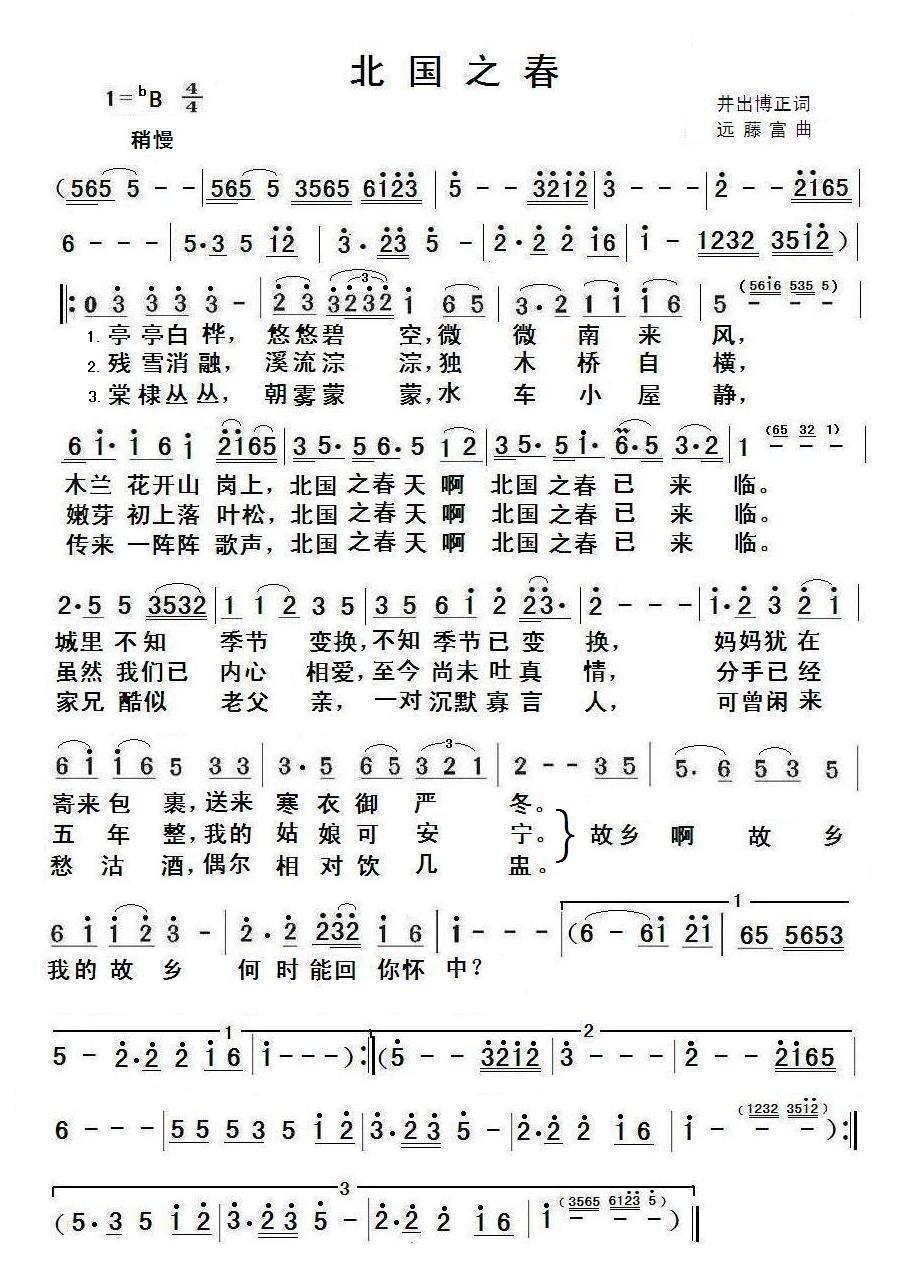 北国之春
1=ᵇB 4/4
井出博正词
稍慢
远藤富曲
(565 5 - - | 565 5 3565 6i̇2̇3̇ | 5̇ - - 3̇2̇i̇2̇ | 3̇ - - - | 2̇ - - 2̇i̇65 |
6 - - - | 5·3 5 i̇2̇ | 3̇·2̇3̇ 5̇ - | 2̇·2̇ 2̇ i̇6 | i̇ - 1232 35i̇2̇) |
‖: 0 3̇ 3̇ 3̇ 3̇ - | 2̇ 3̇ 3̇2̇3̇2̇ i̇ 6 5 | 3·2̇ i̇ i̇ i̇ 6 | 5 - (5616 535 5) - - |
1. 亭亭白桦, 悠悠碧 空,微 微 南 来 风,
2. 残雪消融, 溪流淙 淙,独 木 桥 自 横,
3. 棠棣丛丛, 朝雾蒙 蒙,水 车 小 屋 静,
6 i̇· i̇ 6 i̇ 2̇i̇65 | 3 5· 5 6·5 1 2 | 3 5· 5 i̇· 6·5 3·2 | 1 - (65 32 1) - - |
木兰 花开山 岗上,北国 之春天 啊 北国之春 已 来 临。
嫩芽 初上落 叶松,北国 之春天 啊 北国之春 已 来 临。
传来 一阵阵 歌声,北国 之春天 啊 北国之春 已 来 临。
2·5 5 3532 | 1 1 2 3 5 | 3 5 6 i̇ 2̇ 2̇3̇· | 2̇ - - - | i̇·2̇ 3̇ 2̇ i̇ |
城里 不知 季节 变换,不知 季节已 变 换, 妈妈犹 在
虽然 我们已 内心 相爱,至今 尚未吐 真 情, 分手已 经
家兄 酷似 老父 亲, 一对 沉默寡 言 人, 可曾闲 来
6 i̇ i̇ 6 5 3 3 | 3·5 6 5 3 2 1 | 2 - - 3 5 | 5·6 5 3 5 |
寄来 包 裹,送来 寒 衣 御 严 冬。
五 年 整,我的 姑 娘 可 安 宁。} 故乡 啊 故 乡
愁 沽 酒,偶尔 相 对 饮 几 盅。
6 i̇ i̇ 2̇ 3̇ - | 2̇·2̇ 2̇3̇2̇ i̇ 6 | i̇ - - - | 1 (6 - 6i̇ 2̇i̇ | 65 5653
我的 故 乡 何 时 能回 你怀 中?
5 - 2̇·2̇ 2̇ i̇6 | 1 i̇ - - - ) :‖ 2 (5̇ - - 3̇2̇i̇2̇ | 3̇ - - - | 2̇ - - 2̇i̇65 |
6 - - - | 5 5 5 3 5 i̇ 2̇ | 3̇·2̇3̇ 5̇ - | 2̇·2̇ 2̇ i̇ 6 | i̇ - (1232 35i̇2̇) - - ) :‖
3 (5·3 5 i̇2̇ | 3̇·2̇3̇ 5̇ - | 2̇·2̇ 2̇ i̇ 6 | i̇ - (3565 6i̇2̇3̇ 5̇) - - ) ‖